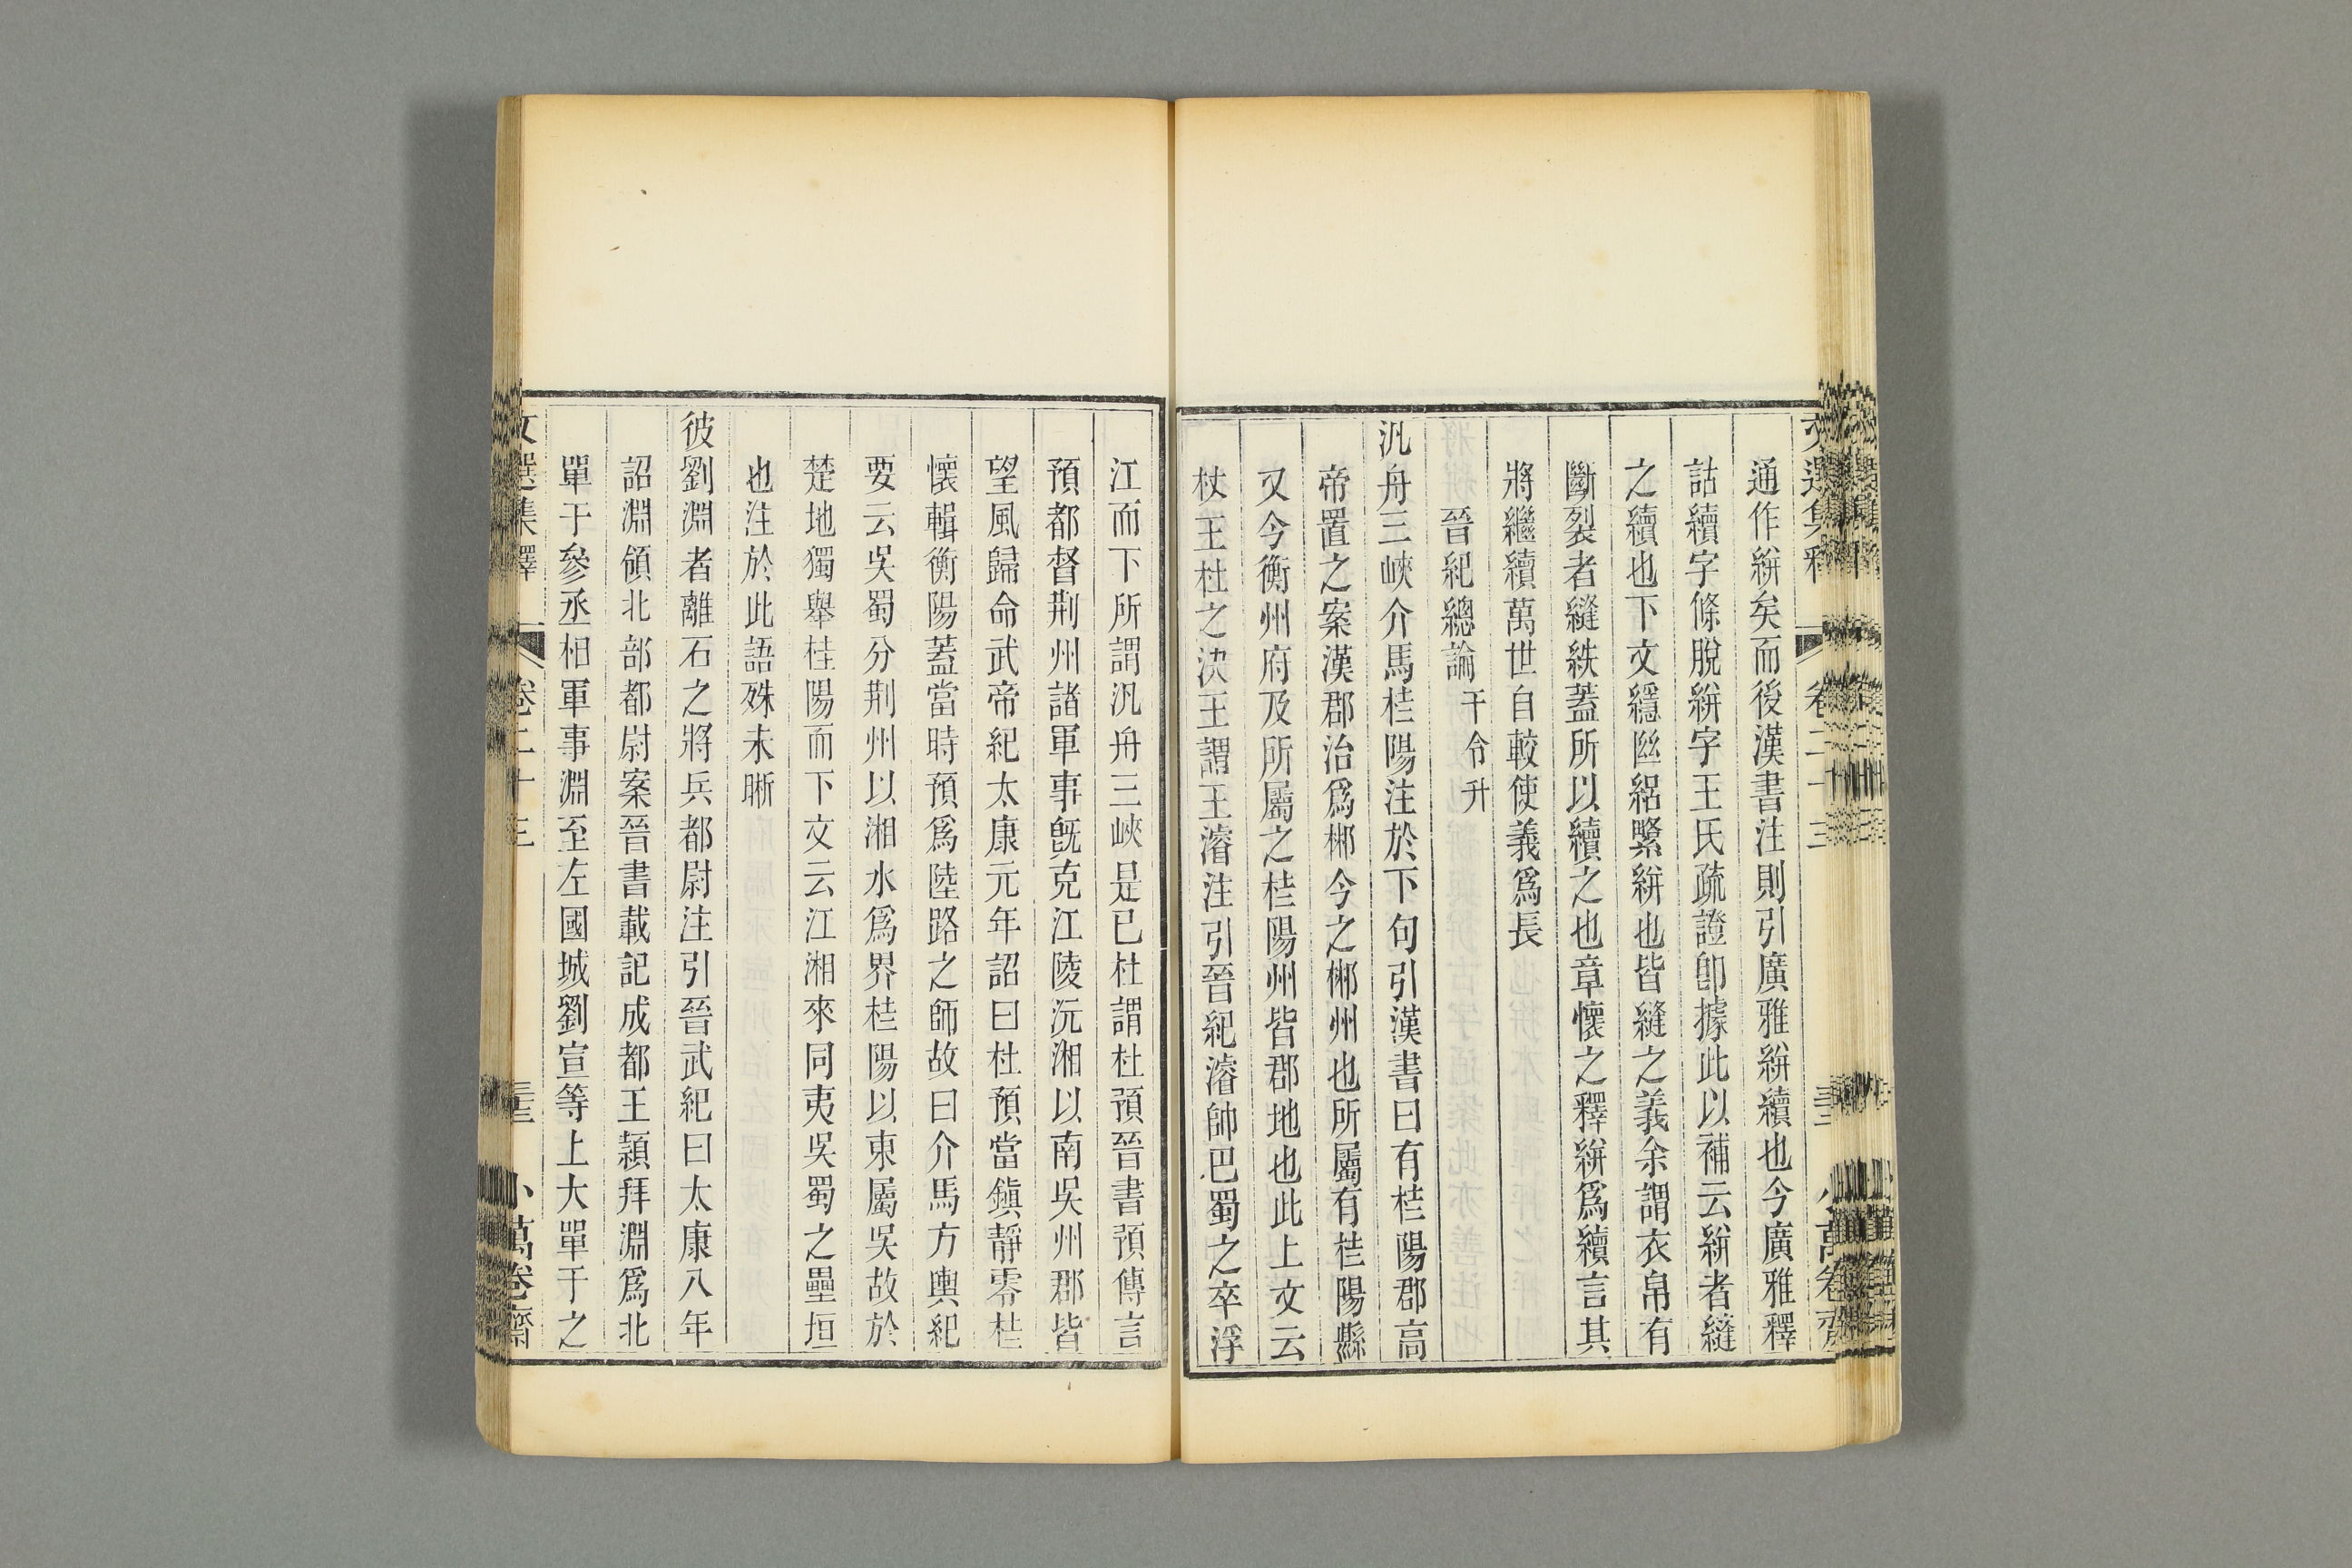 通作絣矣而後漢書注則引廣雅絣續也今廣雅釋
詁續字條脫絣字王氏疏證卽據此以補云絣者縫
之續也下文繧㡇絽緊絣也皆縫之義余謂衣帛有
斷裂者縫紩蓋所以續之也章懷之釋絣爲續言其
將繼續萬世自較使義爲長
晉紀總論干令升
汎舟三峽介馬桂陽注於下句引漢書曰有桂陽郡高
帝置之案漢郡治爲郴今之郴州也所屬有桂陽縣
又今衡州府及所屬之桂陽州皆郡地也此上文云
杖王杜之決王謂王濬注引晉紀濬帥巴蜀之卒浮
江而下所謂汎舟三峽是已杜謂杜預晉書預傳言
預都督荆州諸軍事旣克江陵沅湘以南吳州郡皆
望風歸命武帝紀太康元年詔曰杜預當鎭靜零桂
懷輯衡陽蓋當時預爲陸路之師故曰介馬方輿紀
要云吳蜀分荆州以湘水爲界桂陽以東屬吳故於
楚地獨舉桂陽而下文云江湘來同夷吳蜀之壘垣
也注於此語殊未晰
彼劉淵者離石之將兵都尉注引晉武紀曰太康八年
詔淵領北部都尉案晉書載記成都王穎拜淵爲北
單于參丞相軍事淵至左國城劉宣等上大單于之
文選集釋 卷二十三 小萬卷齋